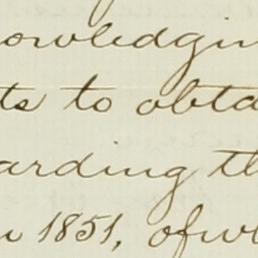 owledgin
ts to obta
arding th
n 1851, of w